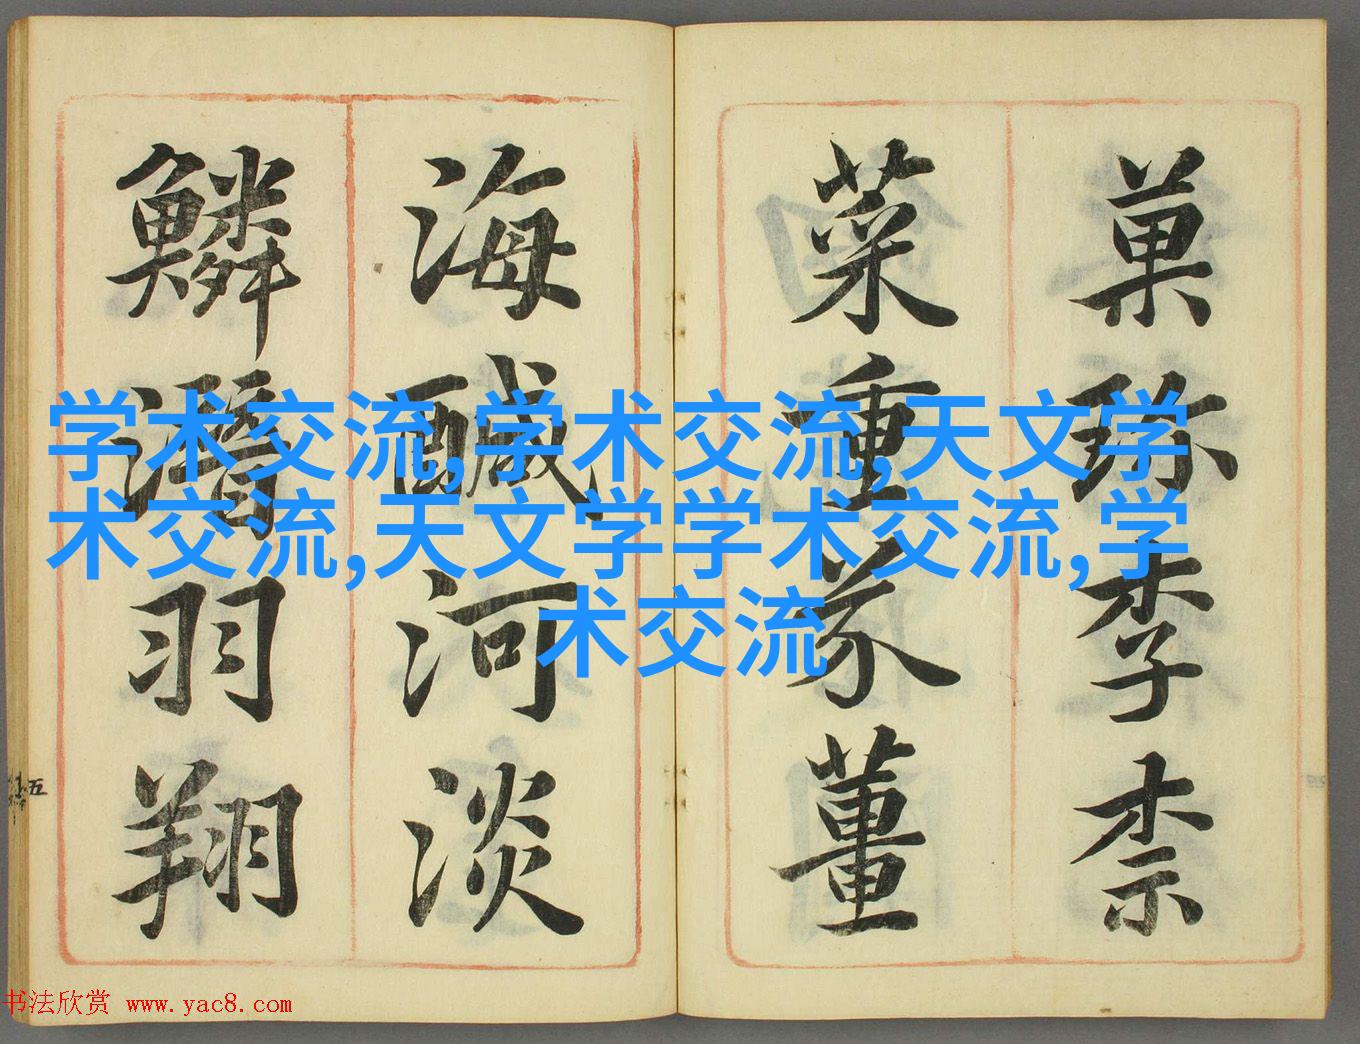 菓珎李柰
菜重芥薑
海醎河淡
鱗潛羽翔
五
学术交流,学术交流,天文学
术交流,天文学学术交流,学
术交流
书法欣赏 www.yac8.com